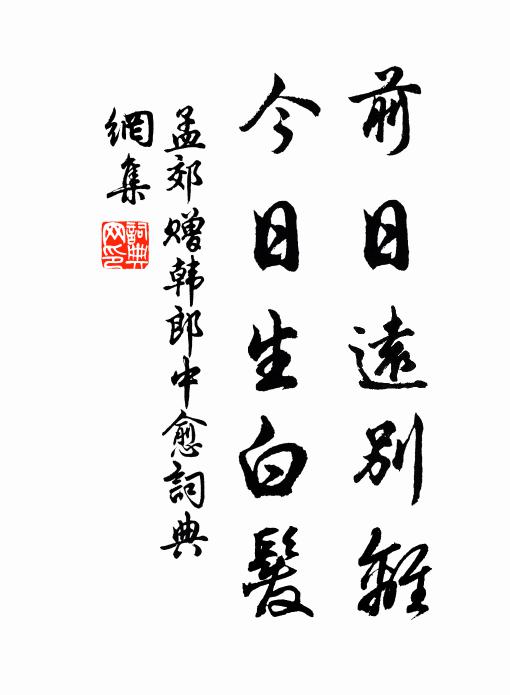 前日遠別離
今日生白髮
孟郊赠韩郎中愈詞典
網集
詞典
网印